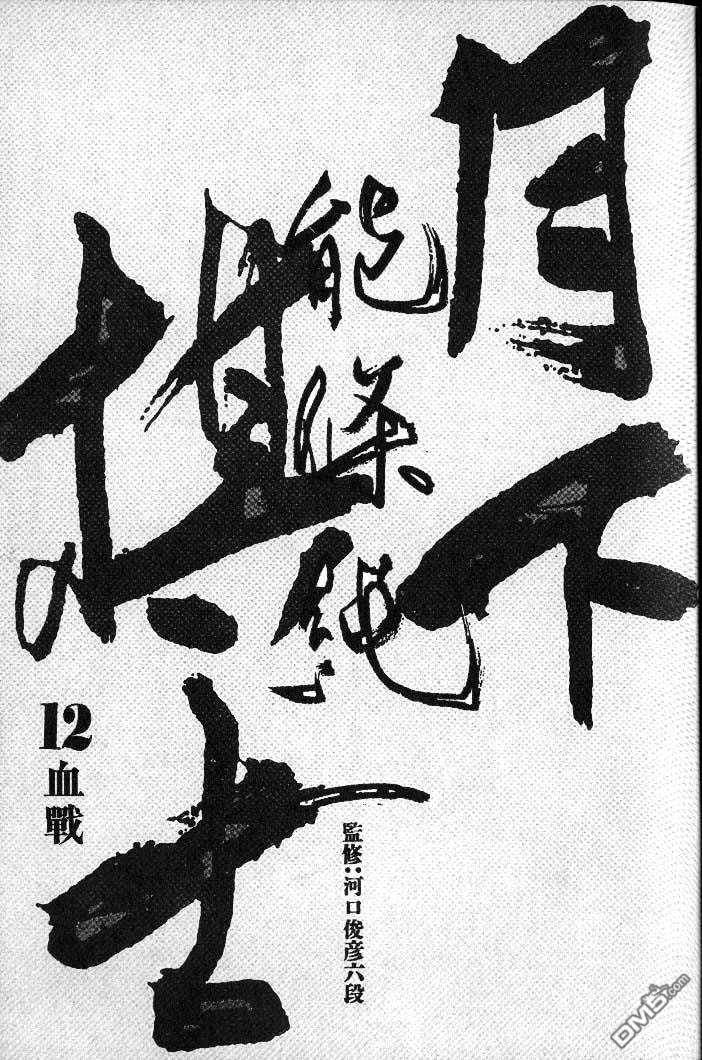 月下
棋士
能條純一
監修:河口俊彦六段
12
血戰
DM5.com